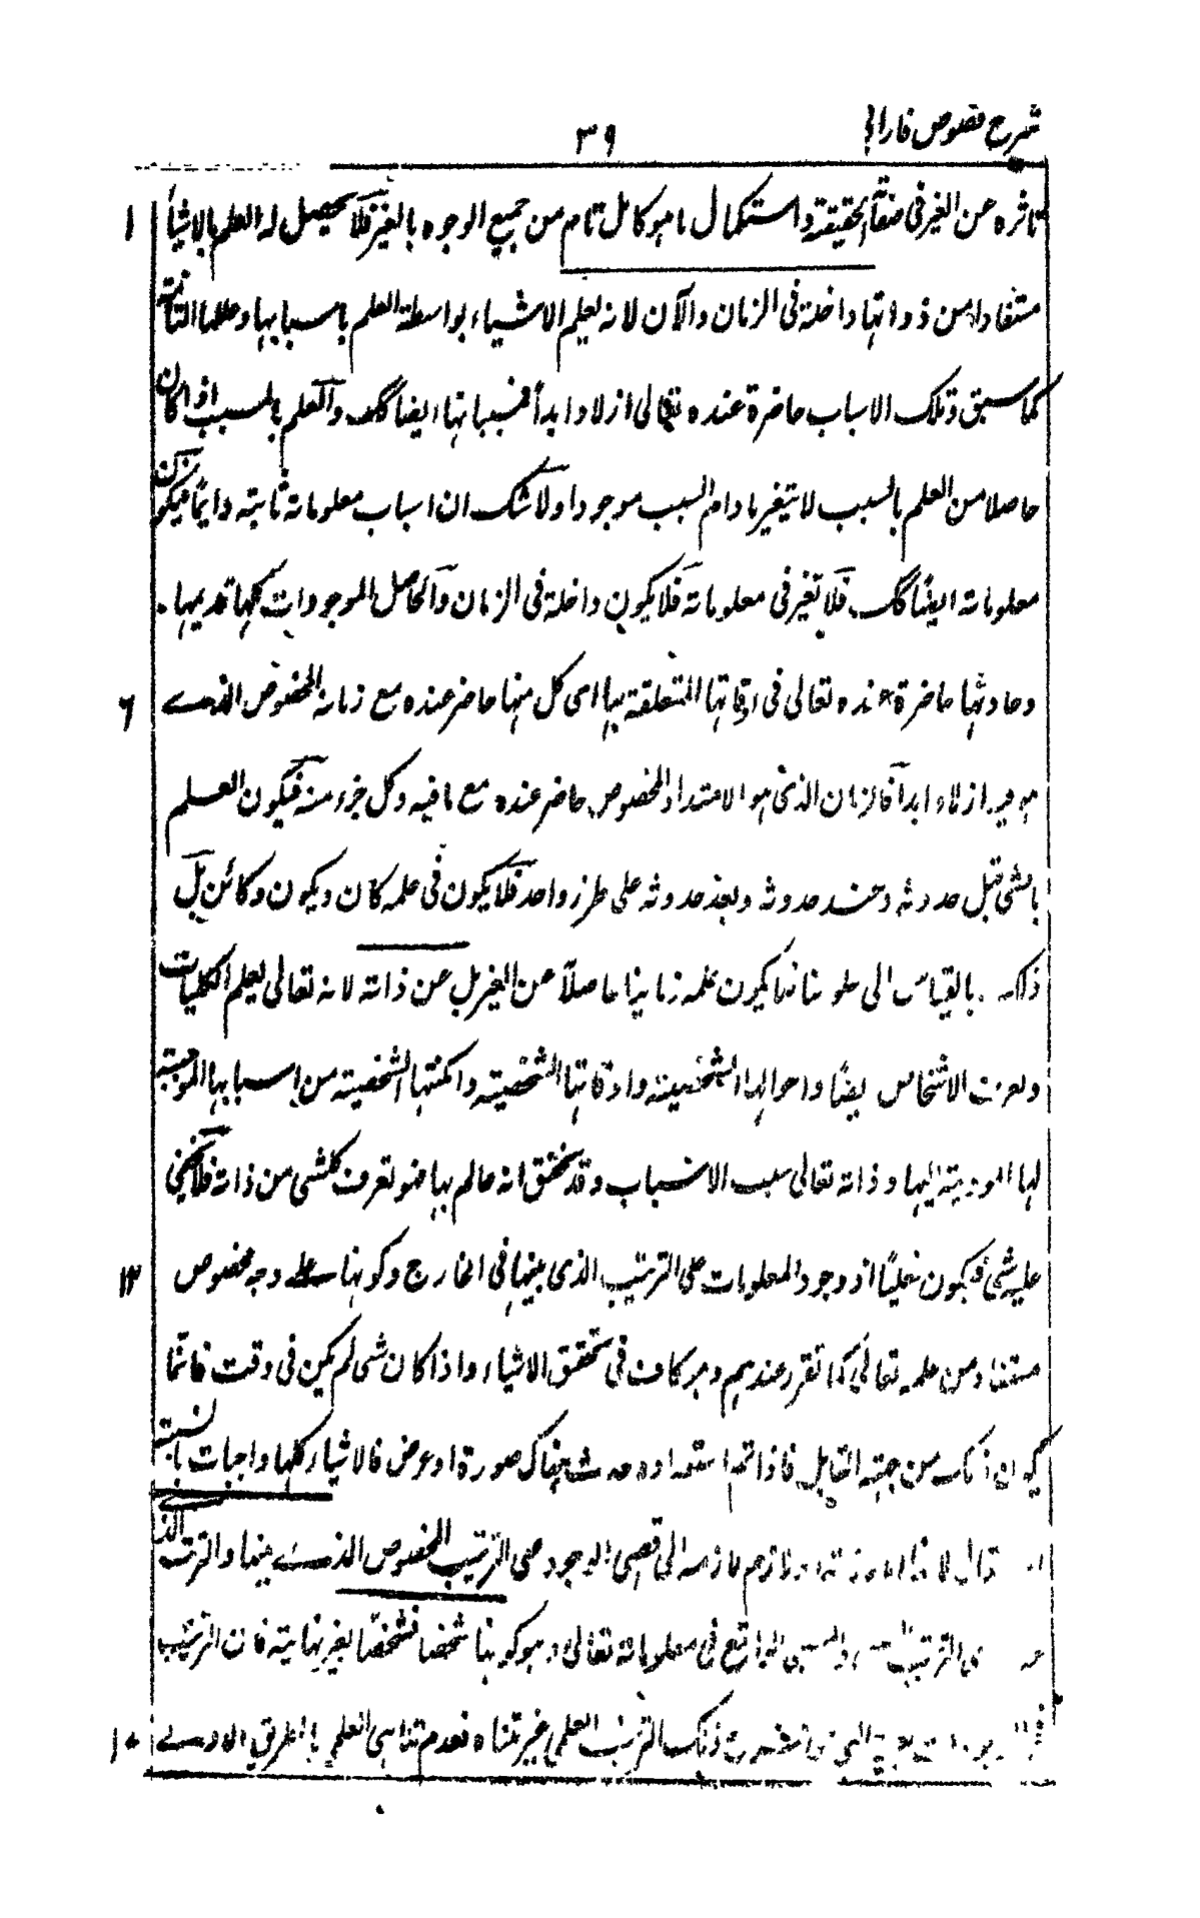 شرح فصوص فارابی
۳۹
تاثره عن الغير فى صفة الحقيقة واستكمال ما هو كامل تام من جميع الوجوه بالغير فلا يحصل له العلم بالاشيا ۱
مستفادا من ذواتها داخلة فى الزمان والآن لانه يعلم الاشياء بواسطة العلم باسبابها وعللها التامة
كما سبق وتلك الاسباب حاضرة عنده تعالى ازلا وابدا فمسبباتها ايضا كك والعلم بالمسبب اذا كان
حاصلا من العلم بالسبب لا يتغير ما دام السبب موجودا ولا شك ان اسباب معلوماته ثابتة دايما فيكون
معلوماته ايضا كك فلا تغير فى معلوماته فلا يكون داخلة فى الزمان والحاصل الموجودات كلها قديمها
وحادثها حاضرة عنده تعالى فى اوقاتها المتعلقة بها اى كل منها حاضر عنده مع زمانه المخصوص الذے ۶
هو فيه ازلا وابدا فالزمان الذى هو الامتداد المخصوص حاضر عنده مع ما فيه وكل جزء منه فيكون العلم
بالشى قبل حدوثه وعند حدوثه وبعد حدوثه على طرز واحد فلا يكون فى علمه كان ويكون وكائن بل
ذلك بالقياس الى علومنا فما يكون علمه زمانيا حاصلا عن الغير بل عن ذاته لانه تعالى يعلم الكليات
ويعرف الاشخاص ايضا واحوالها الشخصية واوقاتها الشخصية وامكنتها الشخصية من اسبابها الموجبة
لها المودية اليها وذاته تعالى سبب الاسباب وقد تحقق انه عالم بها فهو تعرف كلشى من ذاته فلا يخفى
عليه شئ فيكون فعليا اذ وجود المعلومات على الترتيب الذى بينها فى الخارج وكونها على وجه مخصوص ۱۲
مستفاد من علمه تعالى كما تقرر عندهم وهو كاف فى تحقق الاشياء واذا كان شى لم يكن فى وقت فانما
يكون ذلك من جهة القابل فاذا تم استعداده حدث هناك صورة او عرض فالاشياء كلها واجبات بالنسبة
الى الاول لانها لازم لازمه الى اقصى الوجود على الترتيب المخصوص الذے بينها والترتب الذے
الترتيب السببى والمسببى الواقع فى معلوماته تعالى وهو كونها شخصا فشخصا بغير نهاية فان الترتيب
ذلك الترتيب العلمى غير متناه فعدم تناهى العلم بالطريق الاولے ۱۰